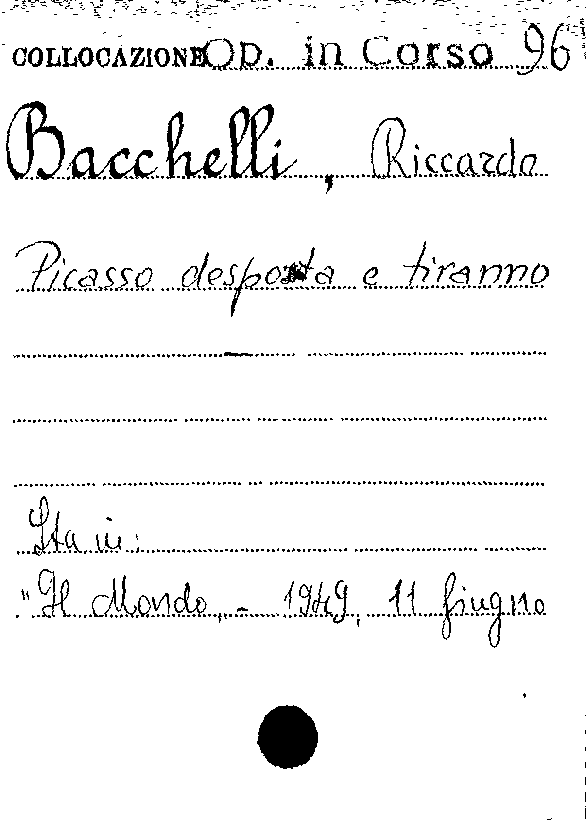 COLLOCAZIONE Op. in Corso 96
Bacchelli, Riccardo
Picasso despota e tiranno
Sta in:
"Il Mondo, - 1949, 11 giugno